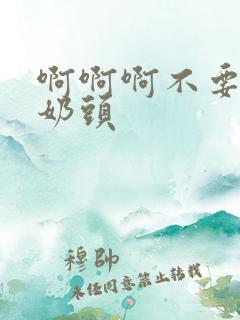 啊啊啊不要
奶頭
穆帥
未经同意禁止转载